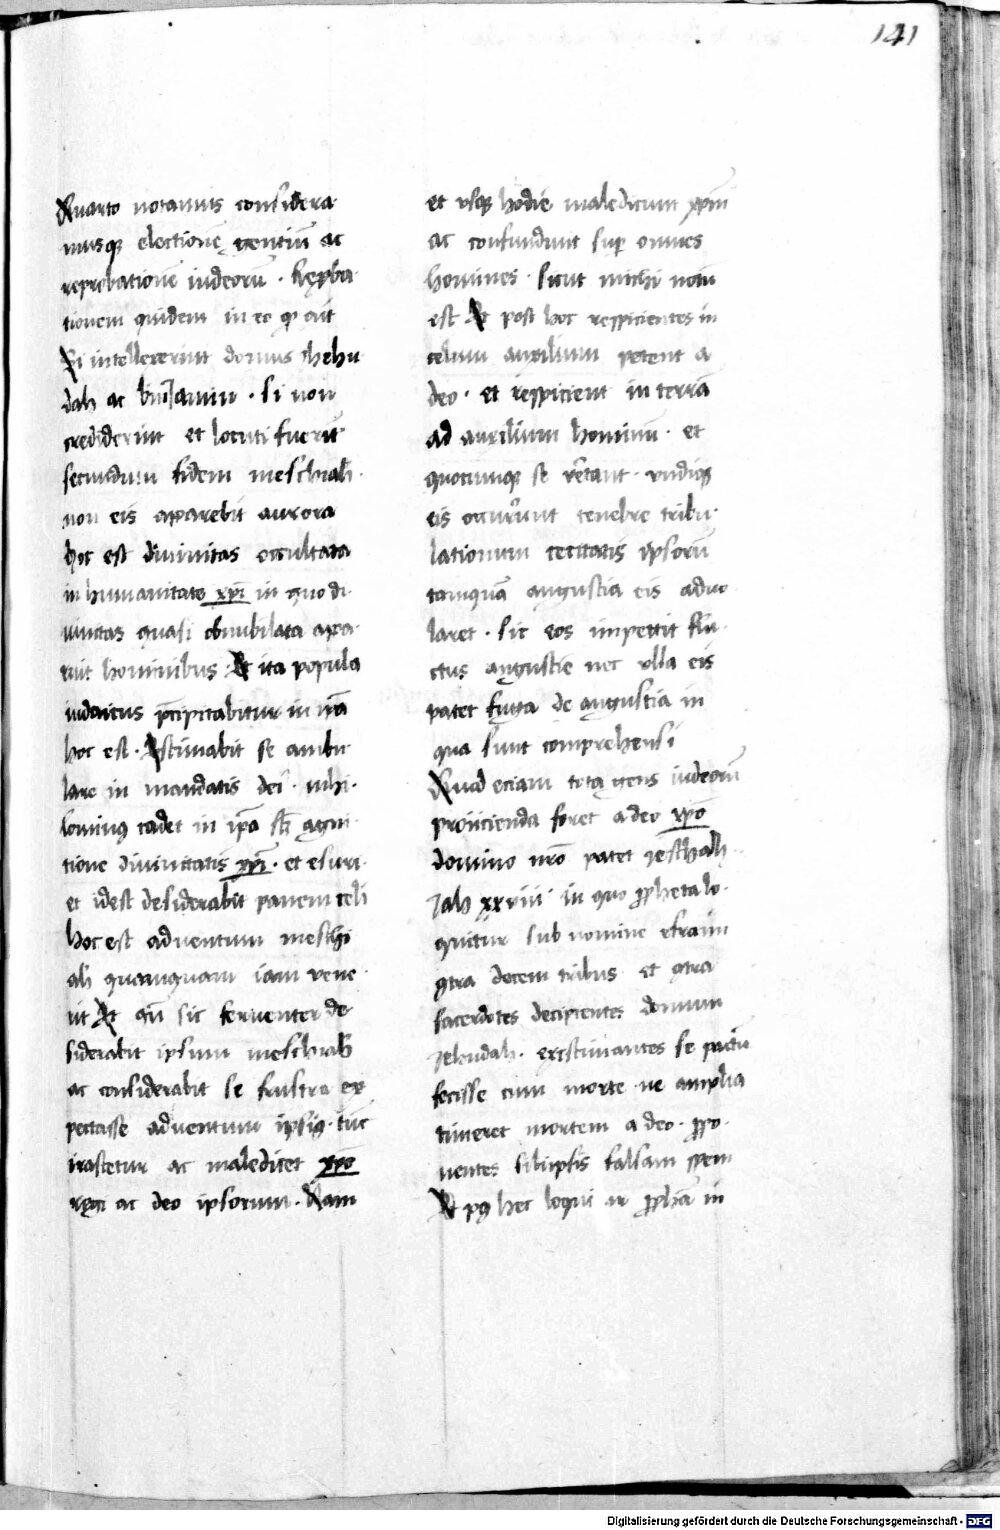 141
Quarto notamus considera
musque electionē gentiū ac
reprobationē iudeorū · Reproba
tionem quidem in eo qꝫ ait
Si intellexerint domus Jhehu
dah ac biniamin · si non
crediderint et locuti fuerīt
secundum fidem meschiah ·
non eis aparebit aurora
hoc est divinitas occultata
in humanitate xp̄i in quo di
vinitas quasi obnubilata apa
ruit hominibus · Et ita popula
iudaicus p̄cipitabitur in
hoc est · Estimabit se ambu
lare in mandatis dei · nihi
lominꝰ cadet in ip̄a agni
tione divinitatis xp̄i · et esuri
et idest desiderabit panem celi
hoc est adventum meschi
ah quamquam iam vene
it Et qn̄ sic ferventer de
siderabit ipsum meschiah
ac considerabit se frustra ex
pectasse adventum ipsiꝰ · tūc
irascetur ac maledicet xp̄o
regi ac deo ipsorum · Nam
et usqꝫ hodie maledicunt xp̄m
ac confundunt sup̄ omnes
homines · sicut michi notū
est Et post hoc respicientes in
celum auxilium petent a
deo · et respicient in terrā
ad auxilium hominū · et
quocumqꝫ se v̄tant · undiqꝫ
eis occurrunt tenebre tribu
lationum cecitatis ipsorū
tamquā angustia eis advo
laret · sic eos impetit flu
ctus angustie nec ulla eis
patet fuga de angustia in
qua sunt comprehensi
Quod eciam tota gens iudeorū
proiicienda foret a deo xp̄o
domino nr̄o patet Jeschah
Jah xxviii in quo ꝓpheta lo
quitur sub nomine efraim
ꝯtra decem tribus et ꝯtra
sacerdotes decipientes domum
Jehudah · existimantes se pactū
fecisse cum morte ne amplia
timeret mortem a deo · ꝓpo
nentes sibiipsis falsam spem
Et pꝰ hec loquitur ꝓphā in
Digitalisierung gefördert durch die Deutsche Forschungsgemeinschaft - DFG